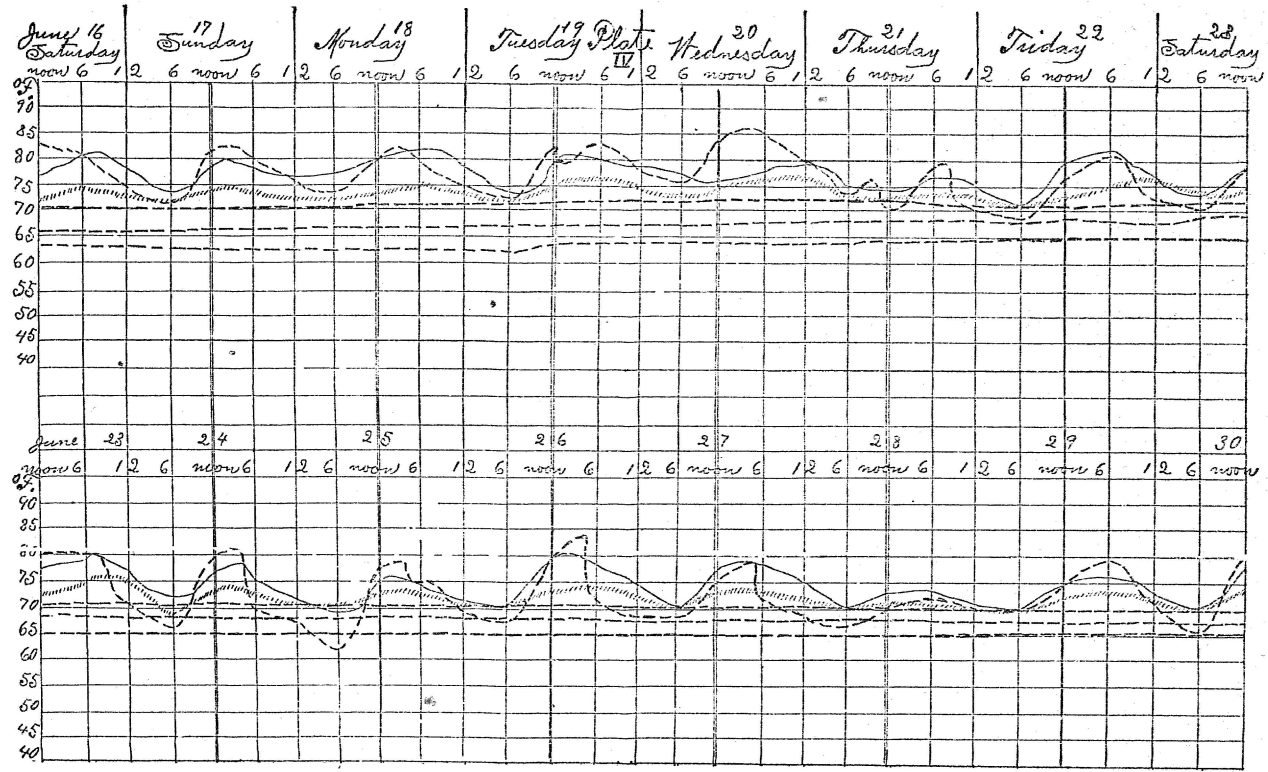 June 16 17 18 19 Plate 20 21 22 23
Saturday Sunday Monday Tuesday IV Wednesday Thursday Friday Saturday
noon 6 12 6 noon 6 12 6 noon 6 12 6 noon 6 12 6 noon 6 12 6 noon 6 12 6 noon 6 12 6 noon
°F.
90
85
80
75
70
65
60
55
50
45
40
June 23 24 25 26 27 28 29 30
noon 6 12 6 noon 6 12 6 noon 6 12 6 noon 6 12 6 noon 6 12 6 noon 6 12 6 noon 6 12 6 noon
°F.
90
85
80
75
70
65
60
55
50
45
40